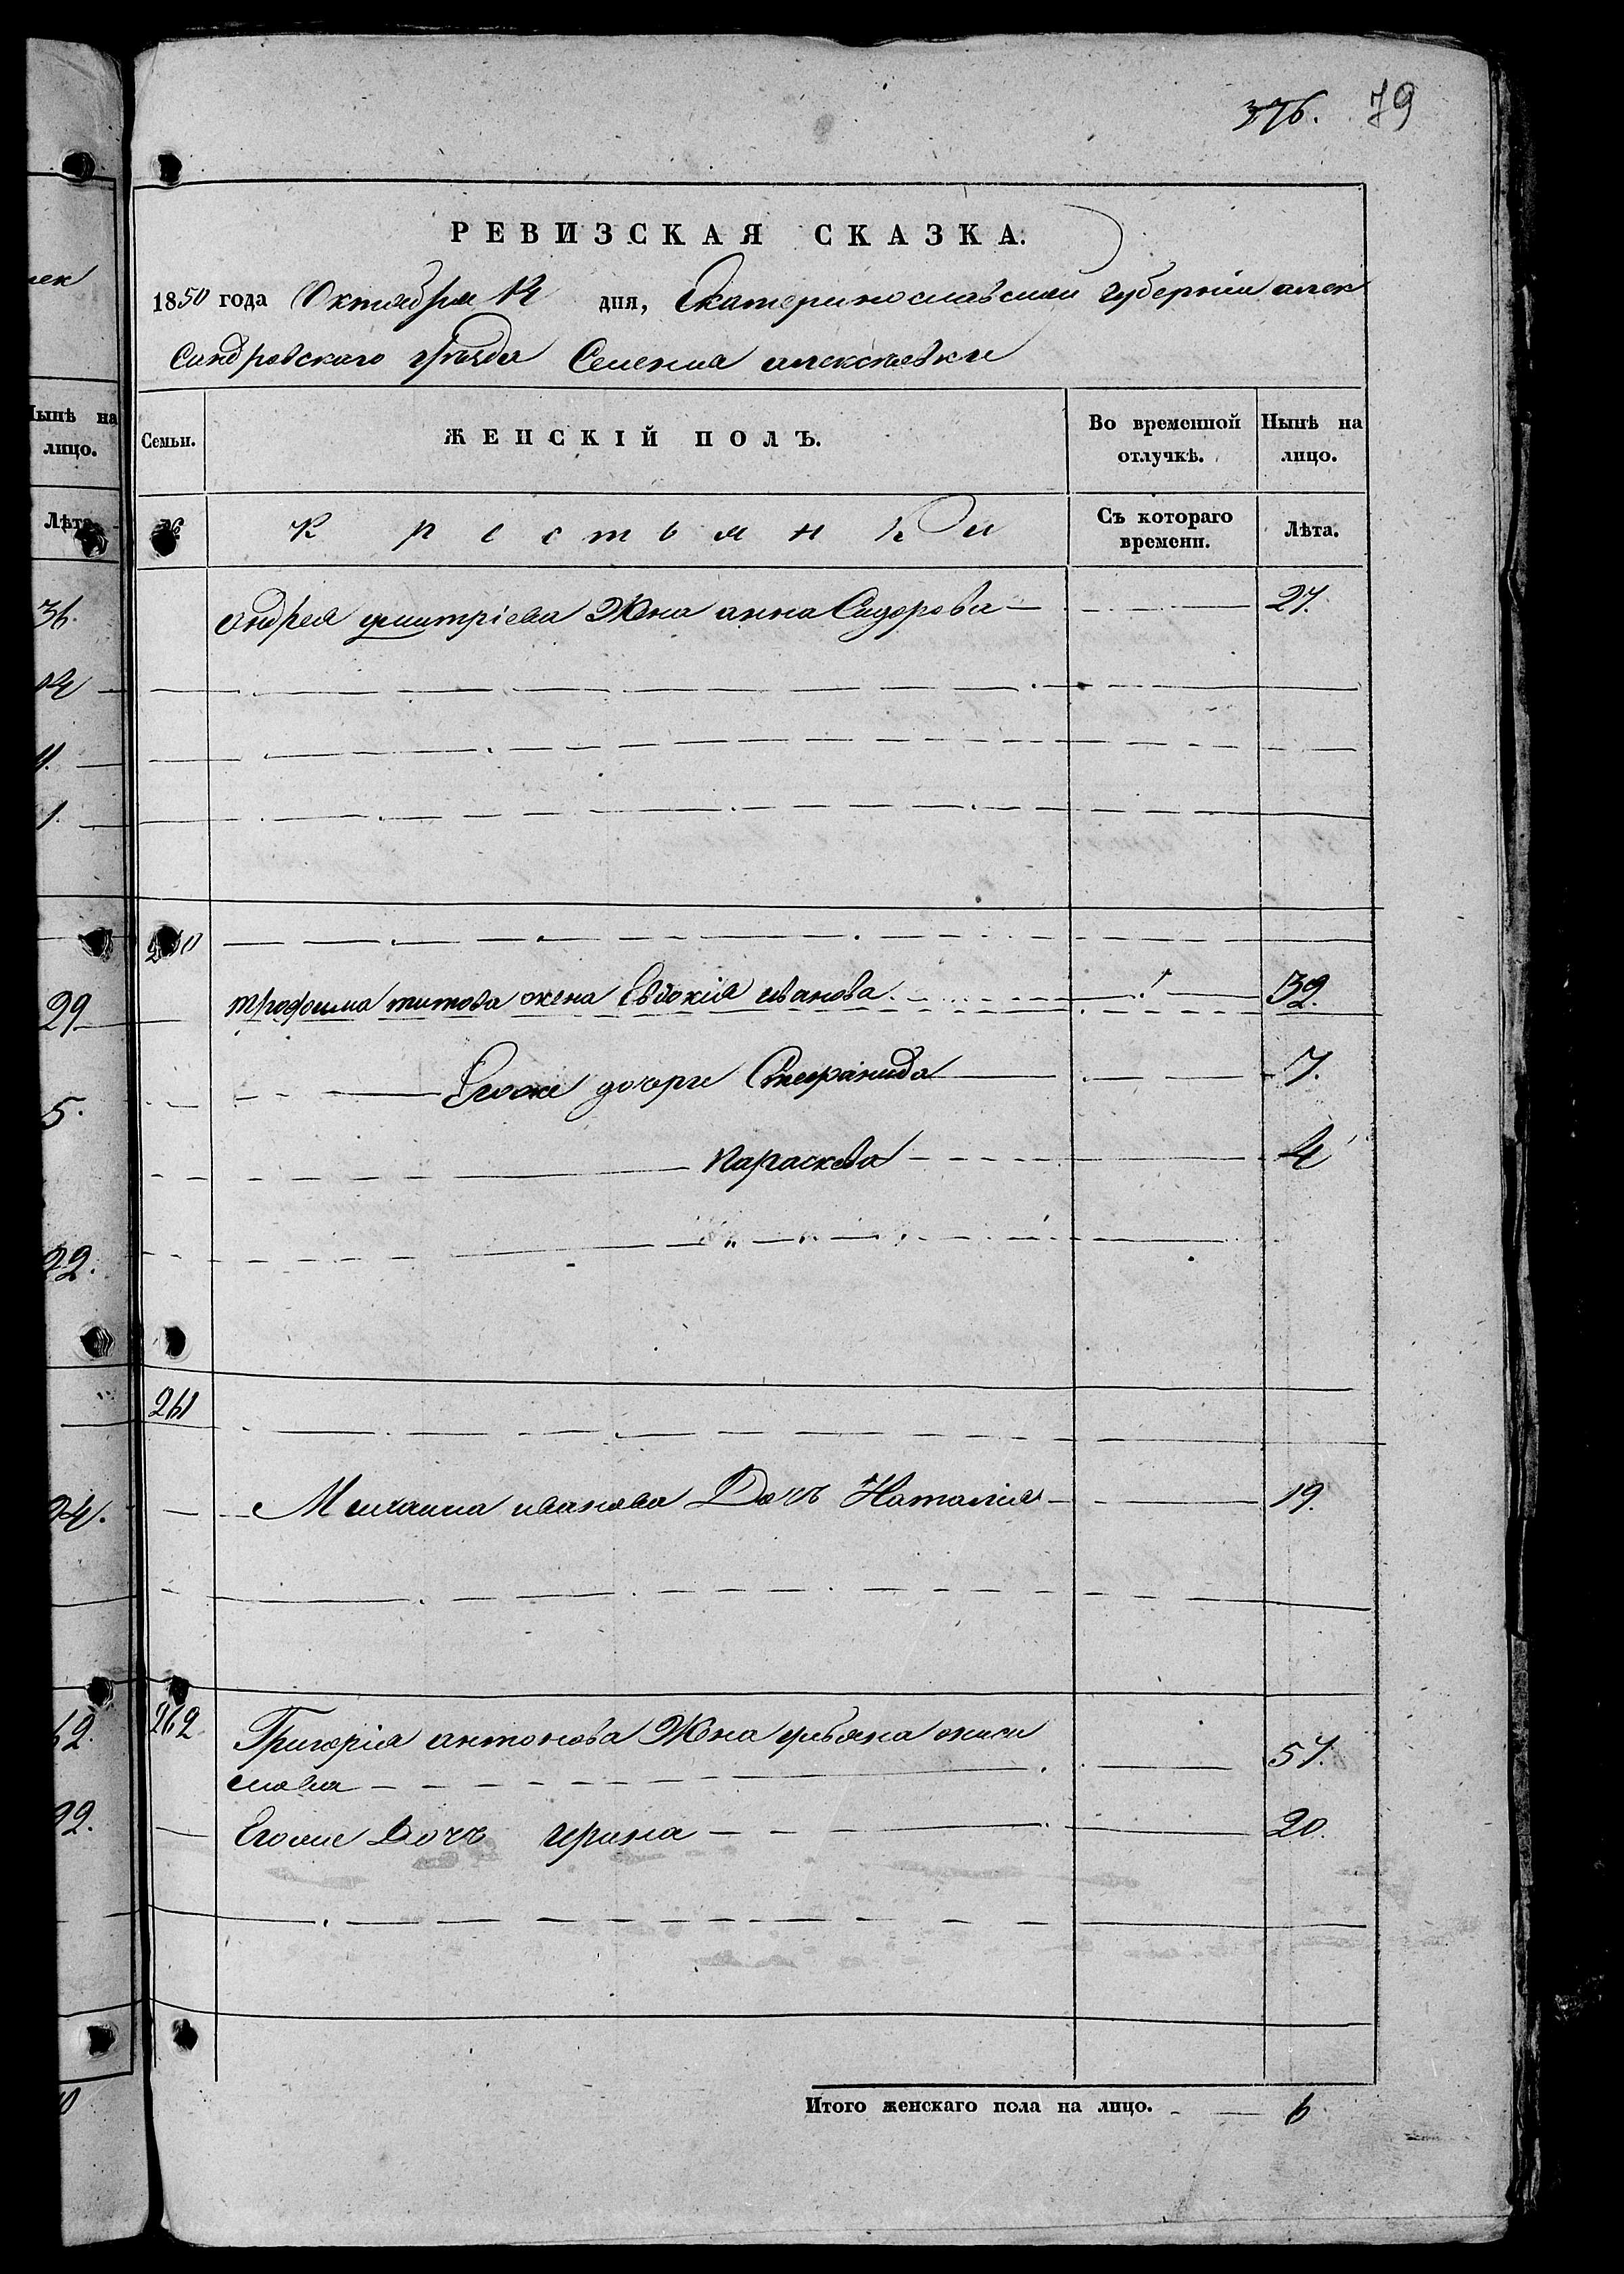 376. 79
РЕВИЗСКАЯ СКАЗКА.
1850 года Октября 12 дня, Екатеринославской губерніи алек
сандровскаго уѣзда Селенія алексѣевки
Семьи. ЖЕНСКІЙ ПОЛЪ. Во временной отлучкѣ. Нынѣ на лицо.
Крестьянки Съ котораго времени. Лѣта.
андрея дмитріева Жена анна Сидорова 27.
260
трофима титова жена Евдокія иванова 32.
Егоже дочери Стефанида 7.
параскева 4
261
Михаила иванова Дочь Наталия 19.
262 Григорія антонова Жена ульяна
57.
Егоже Дочь ирина 20.
Итого женскаго пола на лицо. 6
Нынѣ на
лицо.
Лѣта
36.
14
11.
1.
29
5.
22.
24.
62.
22.